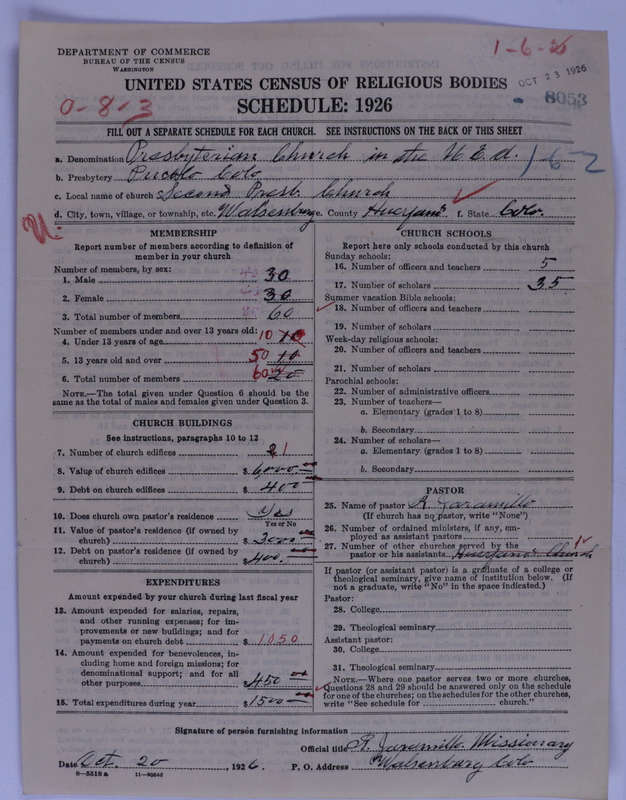 DEPARTMENT OF COMMERCE
BUREAU OF THE CENSUS
WASHINGTON
1-6-26
OCT 23 1926
8053
UNITED STATES CENSUS OF RELIGIOUS BODIES
SCHEDULE: 1926
0-8-3
FILL OUT A SEPARATE SCHEDULE FOR EACH CHURCH. SEE INSTRUCTIONS ON THE BACK OF THIS SHEET
a. Denomination Presbyterian Church in the U.S.A. 1-6-2
b. Presbytery Pueblo Colo
c. Local name of church Second Presb. Church
d. City, town, village, or township, etc. Walsenburg e. County Huerfano f. State Colo.
MEMBERSHIP
Report number of members according to definition of member in your church
Number of members, by sex:
1. Male 30
2. Female 30
3. Total number of members 60
Number of members under and over 13 years old:
4. Under 13 years of age 10 10
5. 13 years old and over 50 10
6. Total number of members 60 20
NOTE.—The total given under Question 6 should be the same as the total of males and females given under Question 3.
CHURCH BUILDINGS
See instructions, paragraphs 10 to 12
7. Number of church edifices 2 1
8. Value of church edifices $ 6,000 00
9. Debt on church edifices $ 400
10. Does church own pastor's residence Yes
Yes or No
11. Value of pastor's residence (if owned by church) $ 2000
12. Debt on pastor's residence (if owned by church) $ 400.
EXPENDITURES
Amount expended by your church during last fiscal year
13. Amount expended for salaries, repairs, and other running expenses; for improvements or new buildings; and for payments on church debt $ 1050
14. Amount expended for benevolences, including home and foreign missions; for denominational support; and for all other purposes $ 450 00
15. Total expenditures during year $ 1500 00
CHURCH SCHOOLS
Report here only schools conducted by this church
Sunday schools:
16. Number of officers and teachers 5
17. Number of scholars 35
Summer vacation Bible schools:
18. Number of officers and teachers
19. Number of scholars
Week-day religious schools:
20. Number of officers and teachers
21. Number of scholars
Parochial schools:
22. Number of administrative officers
23. Number of teachers—
a. Elementary (grades 1 to 8)
b. Secondary
24. Number of scholars—
a. Elementary (grades 1 to 8)
b. Secondary
PASTOR
25. Name of pastor R. Jaramillo
(If church has no pastor, write "None")
26. Number of ordained ministers, if any, employed as assistant pastors
27. Number of other churches served by the pastor or his assistants Huerfano Church 1
If pastor (or assistant pastor) is a graduate of a college or theological seminary, give name of institution below. (If not a graduate, write "No" in the space indicated.)
Pastor:
28. College
29. Theological seminary
Assistant pastor:
30. College
31. Theological seminary
NOTE.—Where one pastor serves two or more churches, Questions 28 and 29 should be answered only on the schedule for one of the churches; on the schedules for the other churches, write "See schedule for church."
Signature of person furnishing information
Official title R. Jaramillo. Missionary
Date Oct. 20, 1926. P. O. Address Walsenburg Colo
8-5518 a 11-9064d